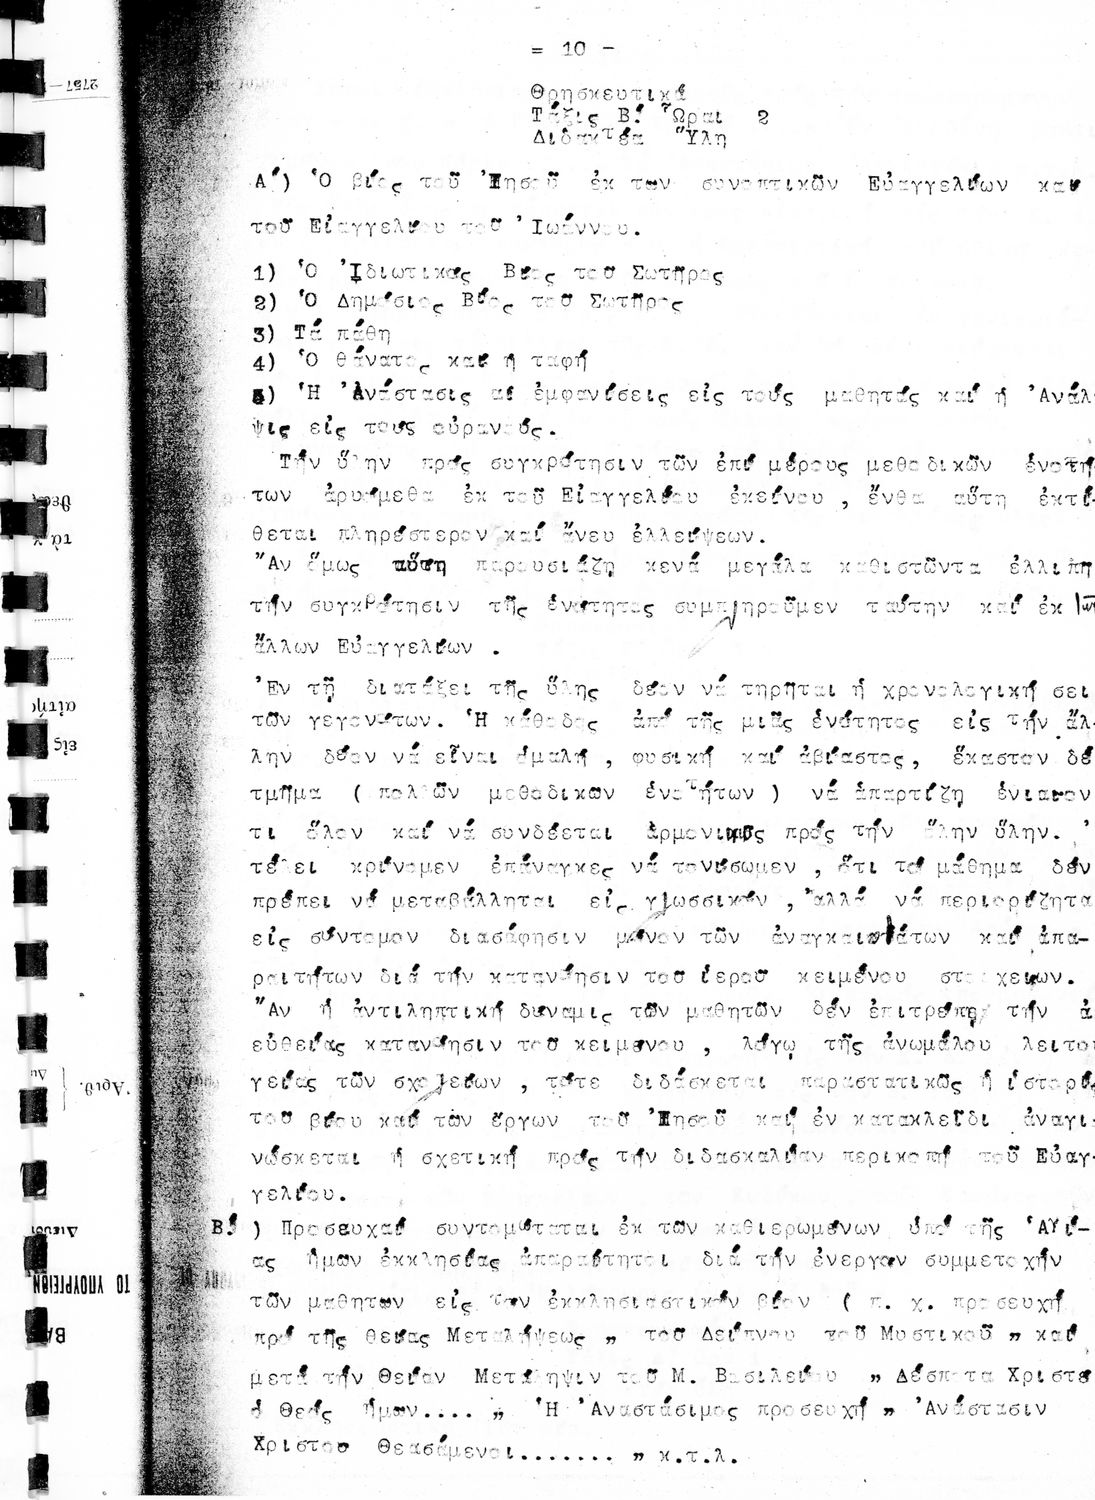 = 10 -
Θρησκευτικά
Τάξις Β΄ Ὧραι 2
Διδακτέα Ὕλη
Α΄) Ὁ βίος τοῦ Ἰησοῦ ἐκ των συνοπτικῶν Εὐαγγελίων και
τοῦ Εὐαγγελίου τοῦ Ἰωάννου.
1) Ὁ Ἰδιωτικός Βίος τοῦ Σωτῆρος
2) Ὁ Δημόσιος Βίος τοῦ Σωτῆρος
3) Τά πάθη
4) Ὁ θάνατος καί ἡ ταφή
5) Ἡ Ἀνάστασις αἱ ἐμφανίσεις εἰς τούς μαθητάς καί ἡ Ἀνάλ
ψις εἰς τους οὐρανούς.
Τήν ὕλην πρός συγκρότησιν τῶν ἐπί μέρους μεθοδικῶν ἑνοτή
των ἀρυόμεθα ἐκ τοῦ Εὐαγγελίου ἐκείνου , ἔνθα αὕτη ἐκτί-
θεται πληρέστερον καί ἄνευ ἐλλείψεων.
Ἄν ὅμως αὕτη παρουσιάζῃ κενά μεγάλα καθιστῶντα ἐλλιπῆ
τήν συγκρότησιν τῆς ἑνότητος συμπληροῦμεν ταύτην καί ἐκ
ἄλλων Εὐαγγελίων .
Ἐν τῇ διατάξει τῆς ὕλης δέον νά τηρῆται ἡ χρονολογική σει
τῶν γεγονότων. Ἡ κάθοδος ἀπό τῆς μιᾶς ἑνότητος εἰς τήν ἄλ-
λην δέον νά εἶναι ὁμαλή , φυσική καί ἀβίαστος, ἕκαστον δέ
τμῆμα ( πολλῶν μεθοδικων ἑνοτήτων ) νά ἀπαρτίζῃ ἑνιαῖον
τι ὅλον καί νά συνδέεται ἁρμονικῶς πρός τήν ὅλην ὕλην. Ἐ
τέλει κρίνομεν ἐπάναγκες νά τονίσωμεν , ὅτι τό μάθημα δέν
πρέπει νά μεταβάλληται εἰς γλωσσικόν , ἀλλά νά περιορίζητα
εἰς σύντομον διασάφησιν μόνον τῶν ἀναγκαιοτάτων καί ἀπα-
ραιτήτων διά τήν κατανόησιν τοῦ ἱεροῦ κειμένου στοιχείων.
Ἄν ἡ ἀντιληπτική δύναμις τῶν μαθητῶν δέν ἐπιτρέπῃ τήν ἀ
εὐθείας κατανόησιν τοῦ κειμένου , λόγῳ τῆς ἀνωμάλου λειτου
γείας τῶν σχολείων , τότε διδάσκεται παραστατικῶς ἡ ἱστορί
τοῦ βίου καί τῶν ἔργων τοῦ Ἰησοῦ καί ἐν κατακλεῖδι ἀναγι-
νώσκεται ἡ σχετική πρός τήν διδασκαλίαν περικοπή τοῦ Εὐαγ-
γελίου.
Β΄) Προσευχαί συντομώταται ἐκ τῶν καθιερωμένων ὑπό τῆς Ἁγί-
ας ἡμων ἐκκλησίας ἀπαραίτητοι διά τήν ἐνεργον συμμετοχήν
τῶν μαθητων εἰς τον ἐκκλησιαστικόν βίον ( π. χ. προσευχή
πρό τῆς θείας Μεταλήψεως „ τοῦ Δείπνου τοῦ Μυστικοῦ „ καί
μετά τήν Θείαν Μετάληψιν τοῦ Μ. Βασιλείου „ Δέσποτα Χριστέ
ὁ Θεός ἡμων.... „ Ἡ Ἀναστάσιμος προσευχή „ Ἀνάστασιν
Χριστοῦ Θεασάμενοι....... „ κ.τ.λ.
2757
θεσ
τὰ κ
αἰτής
εἰς
Ἀριθ.
Διευθ
ΤΟ ΥΠΟΥΡΓΕΙΟΝ
ΒΑ